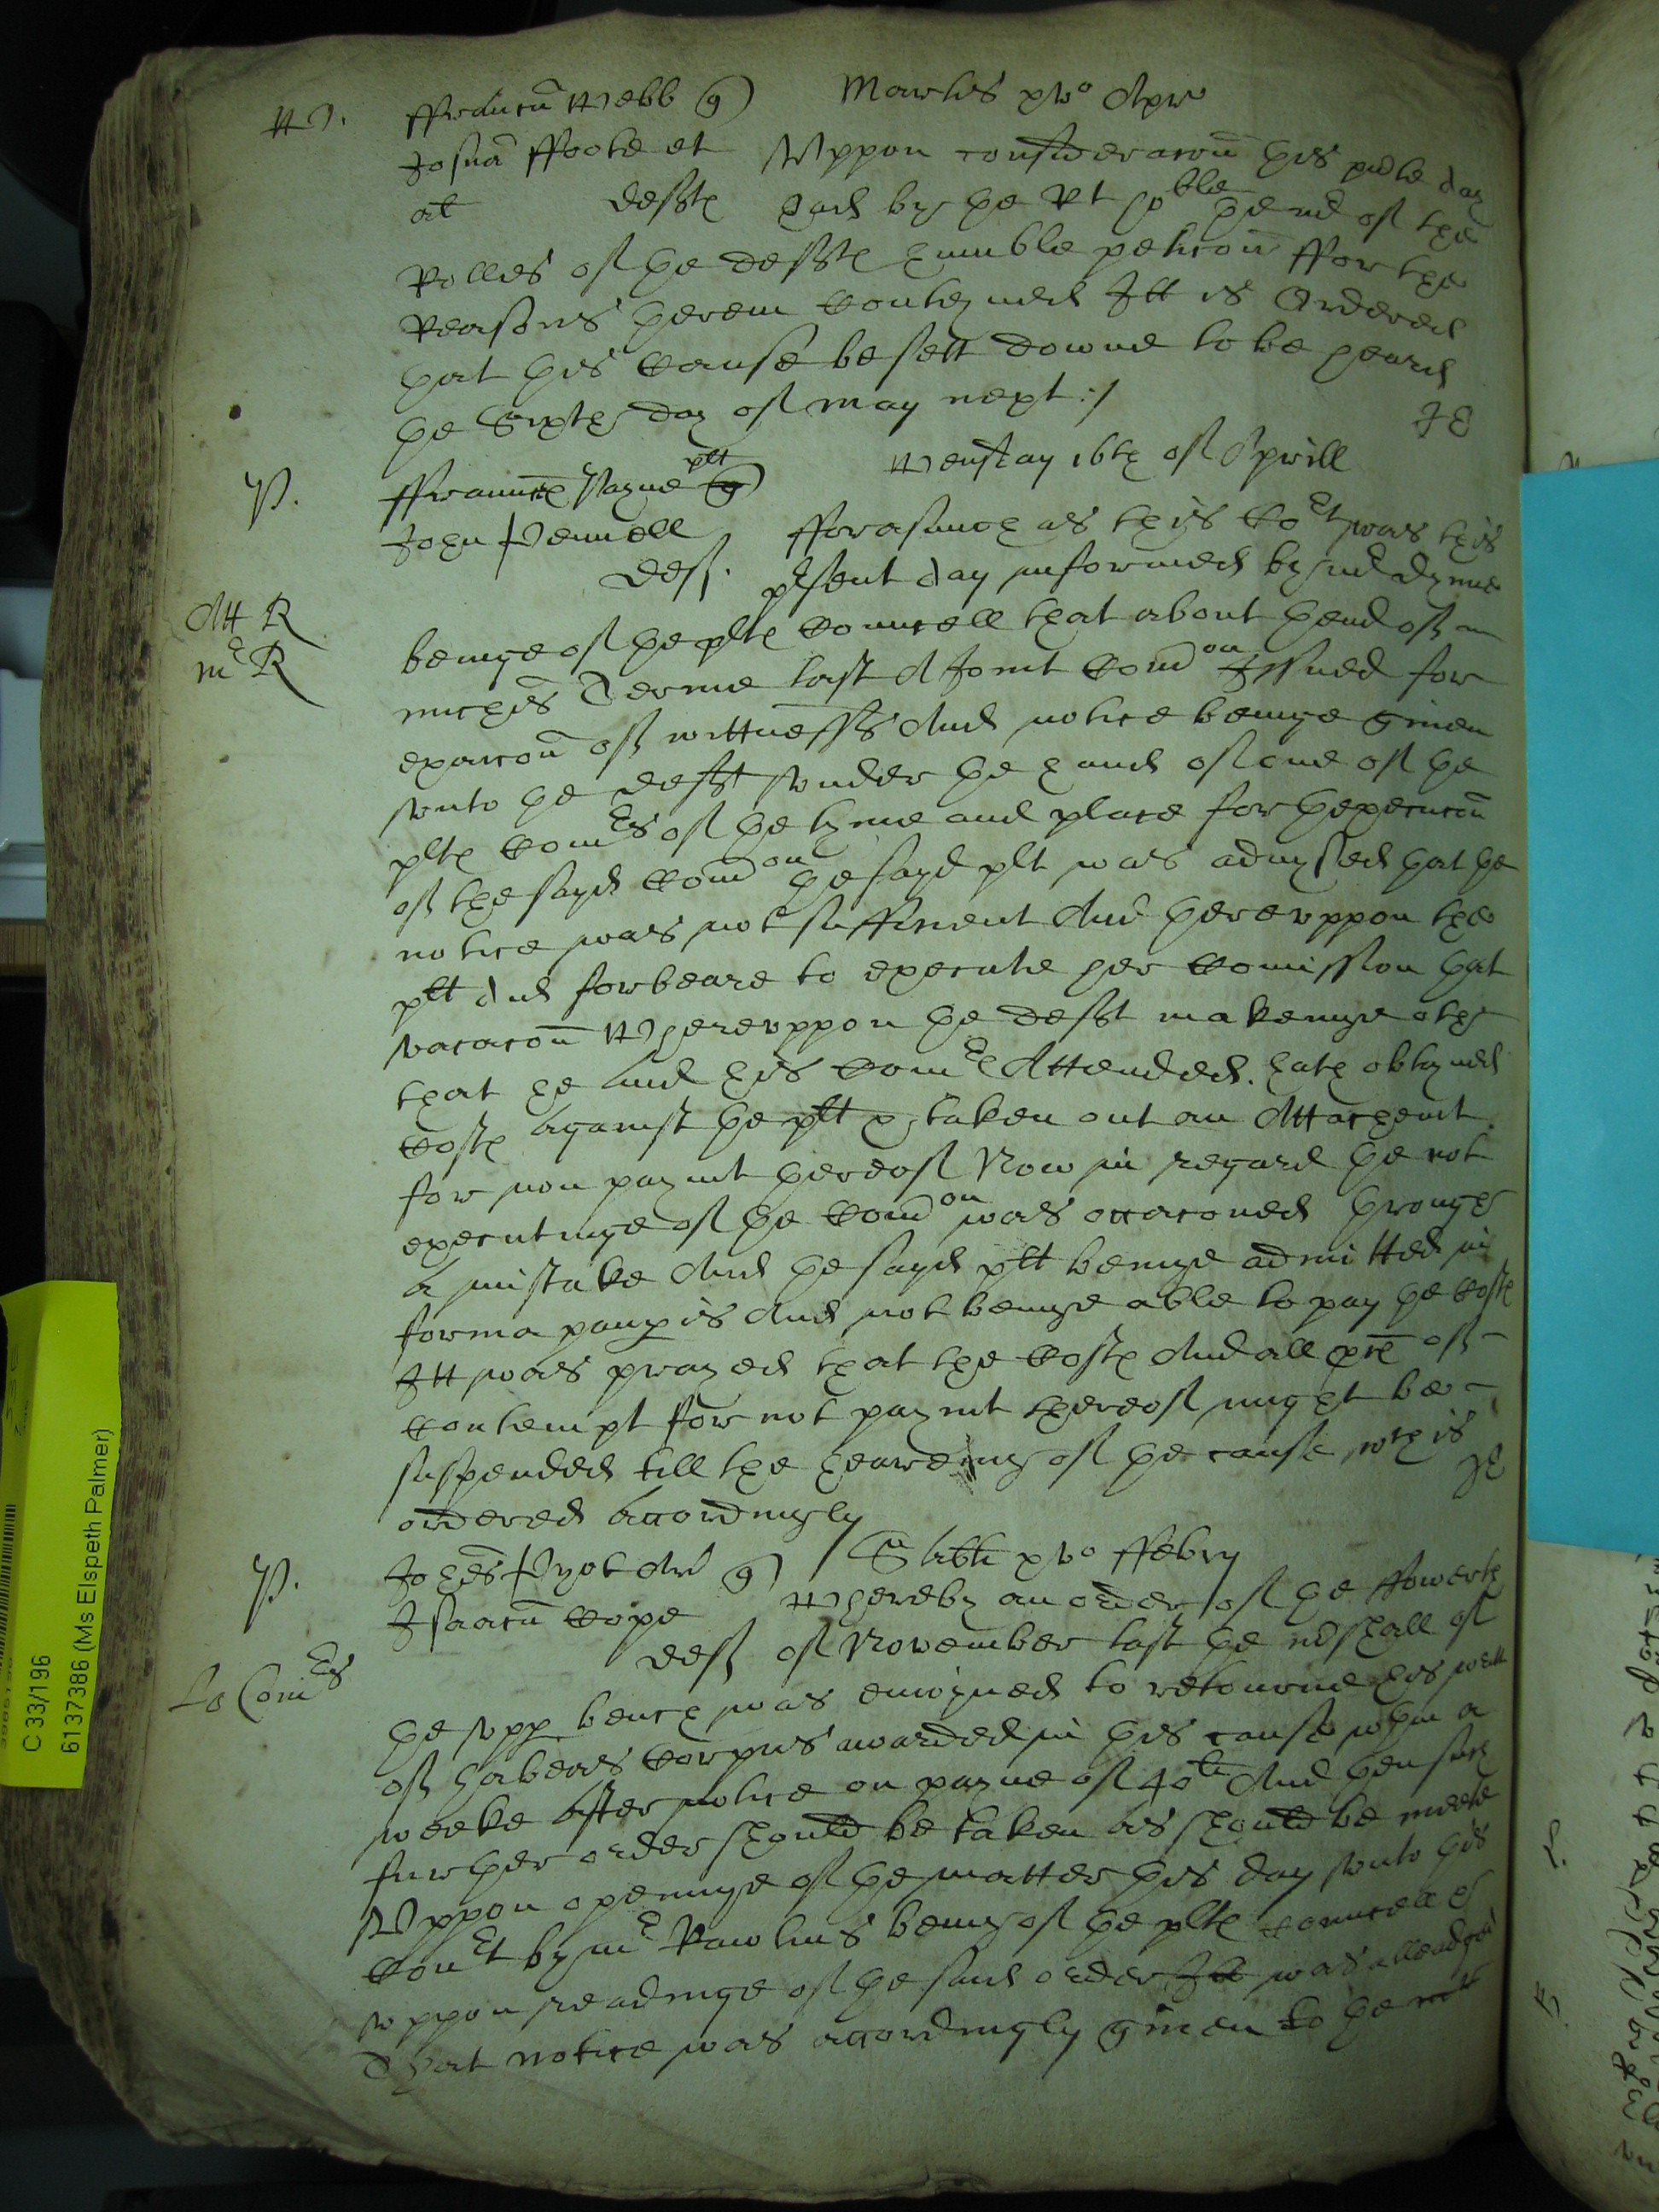 W. ffrancu Webb q) Martis xvo Apr
Josua ffoote et Vppon consideracon this pnte day
al defts had by the Rt hoble the mr of the
Rolles of the defts humble peticon ffor the
Reasons therein Conteyned Itt is Ordered
that this Cause be sett downe to be heard
the Sixth day of may next :/
P. ffrauncs Payne plt q) Wensday 16th of Aprill
John Pennell fforasmuch as this Cort was this
def. psent day informed by mr dyme
Att R beinge of the plts Councell that about thend of
mr R michis Terme last A Joint Comon Issued for
exacon of wittnesses And notice beinge given
vnto the deft vnder the hand of one of the
plts Comrs of the tyme and place for thexecucon
of the sayd Comon the sayd plt was advysed that the
notice was not sufficient And therevppon the
plt did forbeare to execute her Comission that
vacacon Wherevppon the deft makeinge oth
that he and his Comrs Attended. hath obteyned
Costs against the plt & taken out an Attachemt
for non paymt thereof Now in regard the not
executinge of the Comon was occaconed through
a mistake And the sayd plt beinge admitted in
forma paupis And not beinge able to pay the Costs
Itt was prayed that the Costs And all pces of
Contempt for not paymt thereof might be
suspended till the heareing of the cause wch is
ordered accordingly
P. Johes Pyot Ar q) Sabti xvo ffebry
Isaacu Cope Whereby an order of the ffowerth
def of November last the mrshall of
Lo Comrs the vpp bench was enioyned to retourne his writt
of habeas Corpus awarded in this cause wthin a
weeke after notice on payne of 40li And then such
further order should be taken as should be meete
Vppon openinge of the matter this day vnto this
Court by mr Rawlins being of the plts Councell &
vppon readinge of the said order It was alleadged
That notice was accordingly given to the
C 33/196
6137386 (Ms Elspeth Palmer)